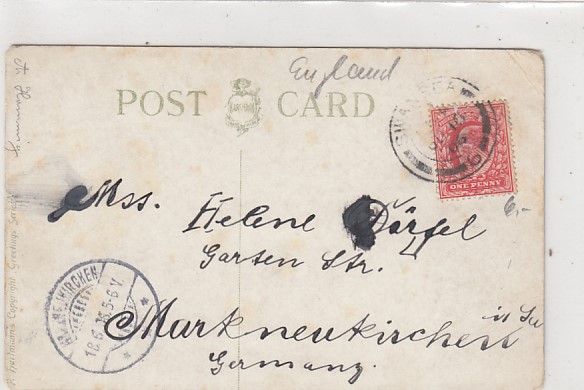 England
POST CARD
SWANSEA
ONE PENNY
6,-
Mss. Helene Dörfel
Garten Str.
Markneukirchen i/ Sa
Germany.
MARKNEUKIRCHEN
18.6. 5-6 V.
Hartmann's Copyright Greetings Series